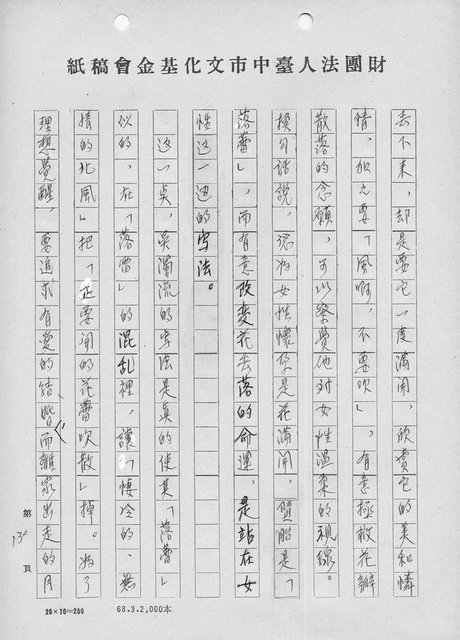 財團法人臺中市文化基金會稿紙
去不來,却是要它一度滿開,欣賞它的美和憐
情,加之要「風啊,不要吹」,有意拯救花瓣
散落的念願,可以察覺他對女性溫柔的視線。
換句話說,認為女性懷孕是花滿開,墮胎是「
落蕾」,而有意改變花去落的命運,是站在女
性這一邊的写法。
這一点,吳滿流的字法是真的使其「落蕾」
似的,在「落蕾」的混乱裡,讓「悽冷的、無
情的北風」把「正要開的花蕾吹散」掉。為了
理想覺醒,要追求有愛的結婚而離家出走的月
第 130 頁
20×10=200
68.3.2,000本